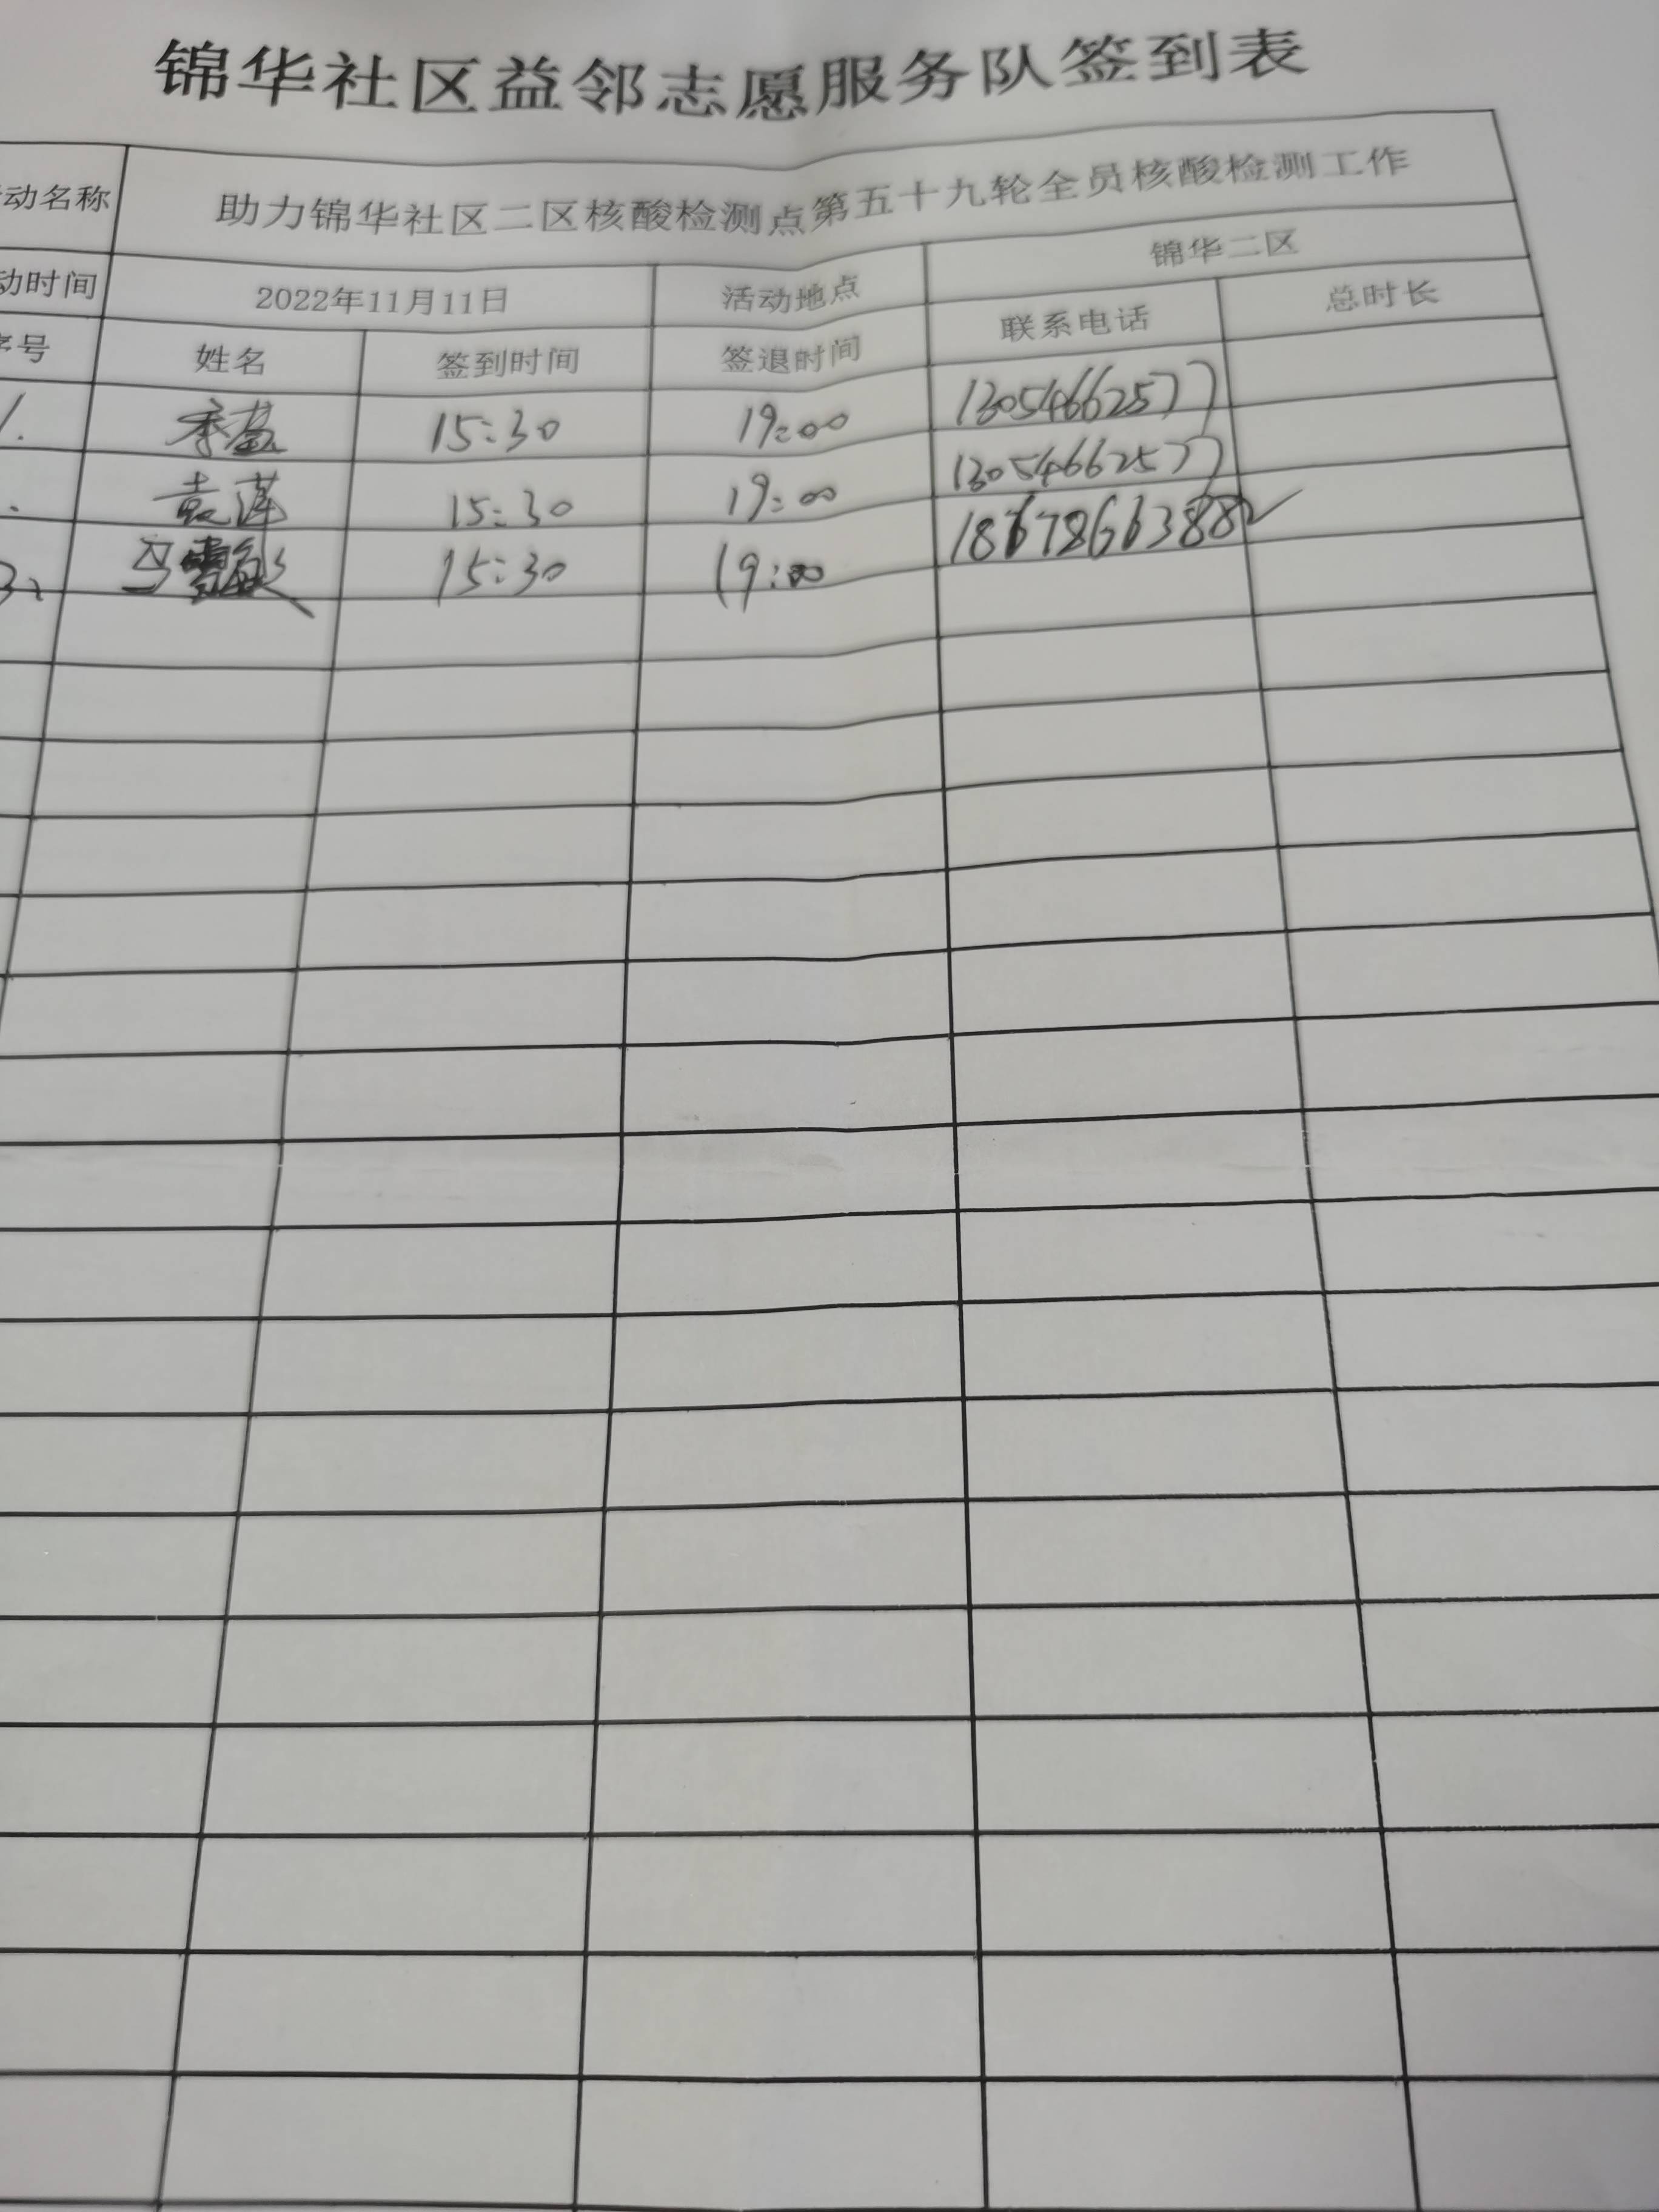 锦华社区益邻志愿服务队签到表
动名称 助力锦华社区二区核酸检测点第五十九轮全员核酸检测工作
动时间 2022年11月11日 活动地点 锦华二区
序号 姓名 签到时间 签退时间 联系电话 总时长
1. 15:30 19:00 13054662577
. 袁莲 15:30 19:00 13054662577
3. 15:30 19:00